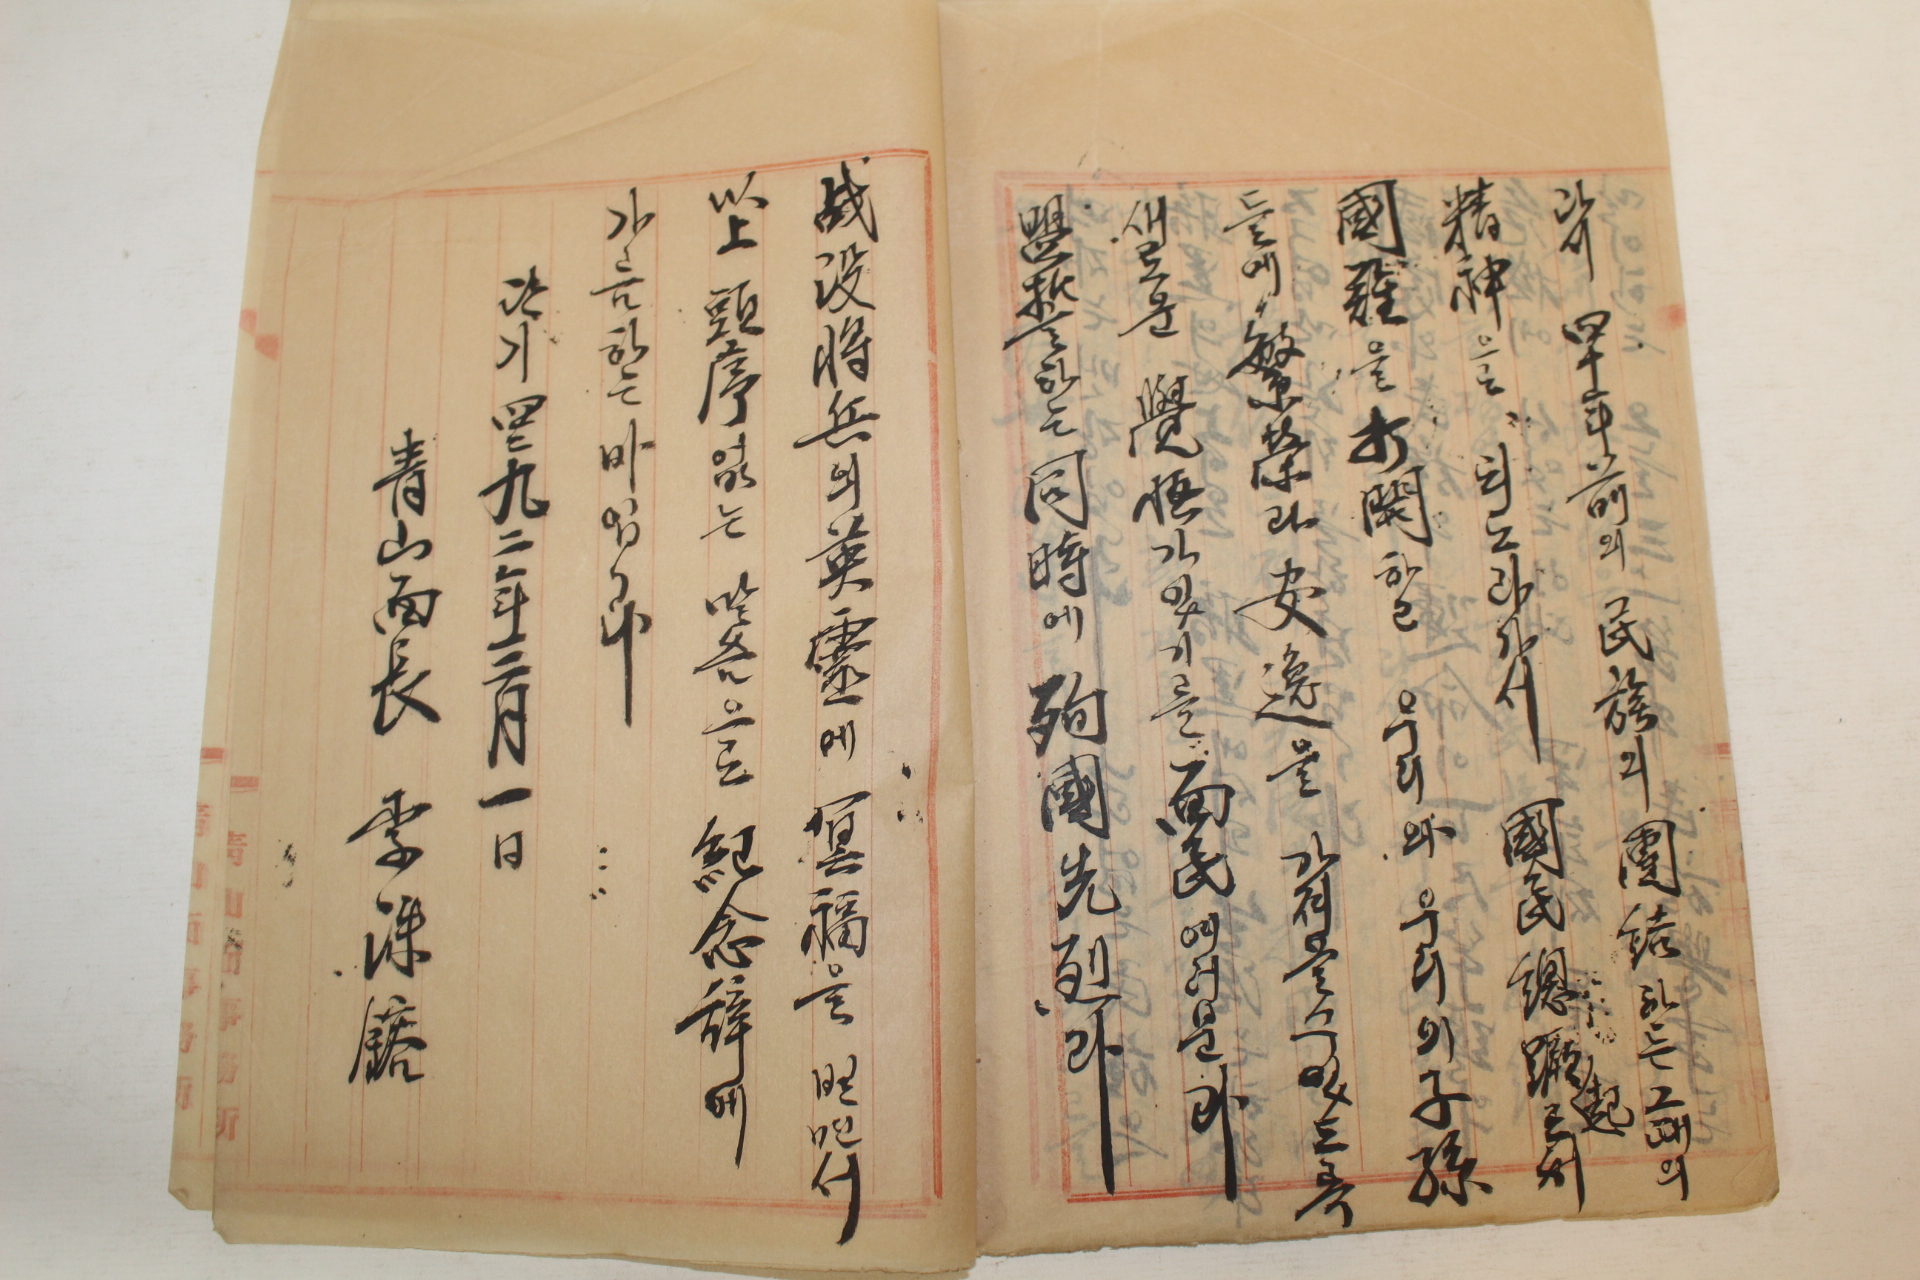 四十年前의 民族의 團結하는 그때의
精神을 되도라가서 國民 總蹶起로써
國難을 打開하고 우리와 우리의 子孫
들에 繁榮과 安逸을 가져올수있도록
새로운 覺悟가있기를 面民 여러분과
盟誓를하는 同時에 殉國先烈과
战没將兵의 英靈에 冥福을 빌면서
以上 頭序없는 말슴으로 紀念辭에
가름하는바입니다
단기 四二九二年 三月 一日
青山面長 李